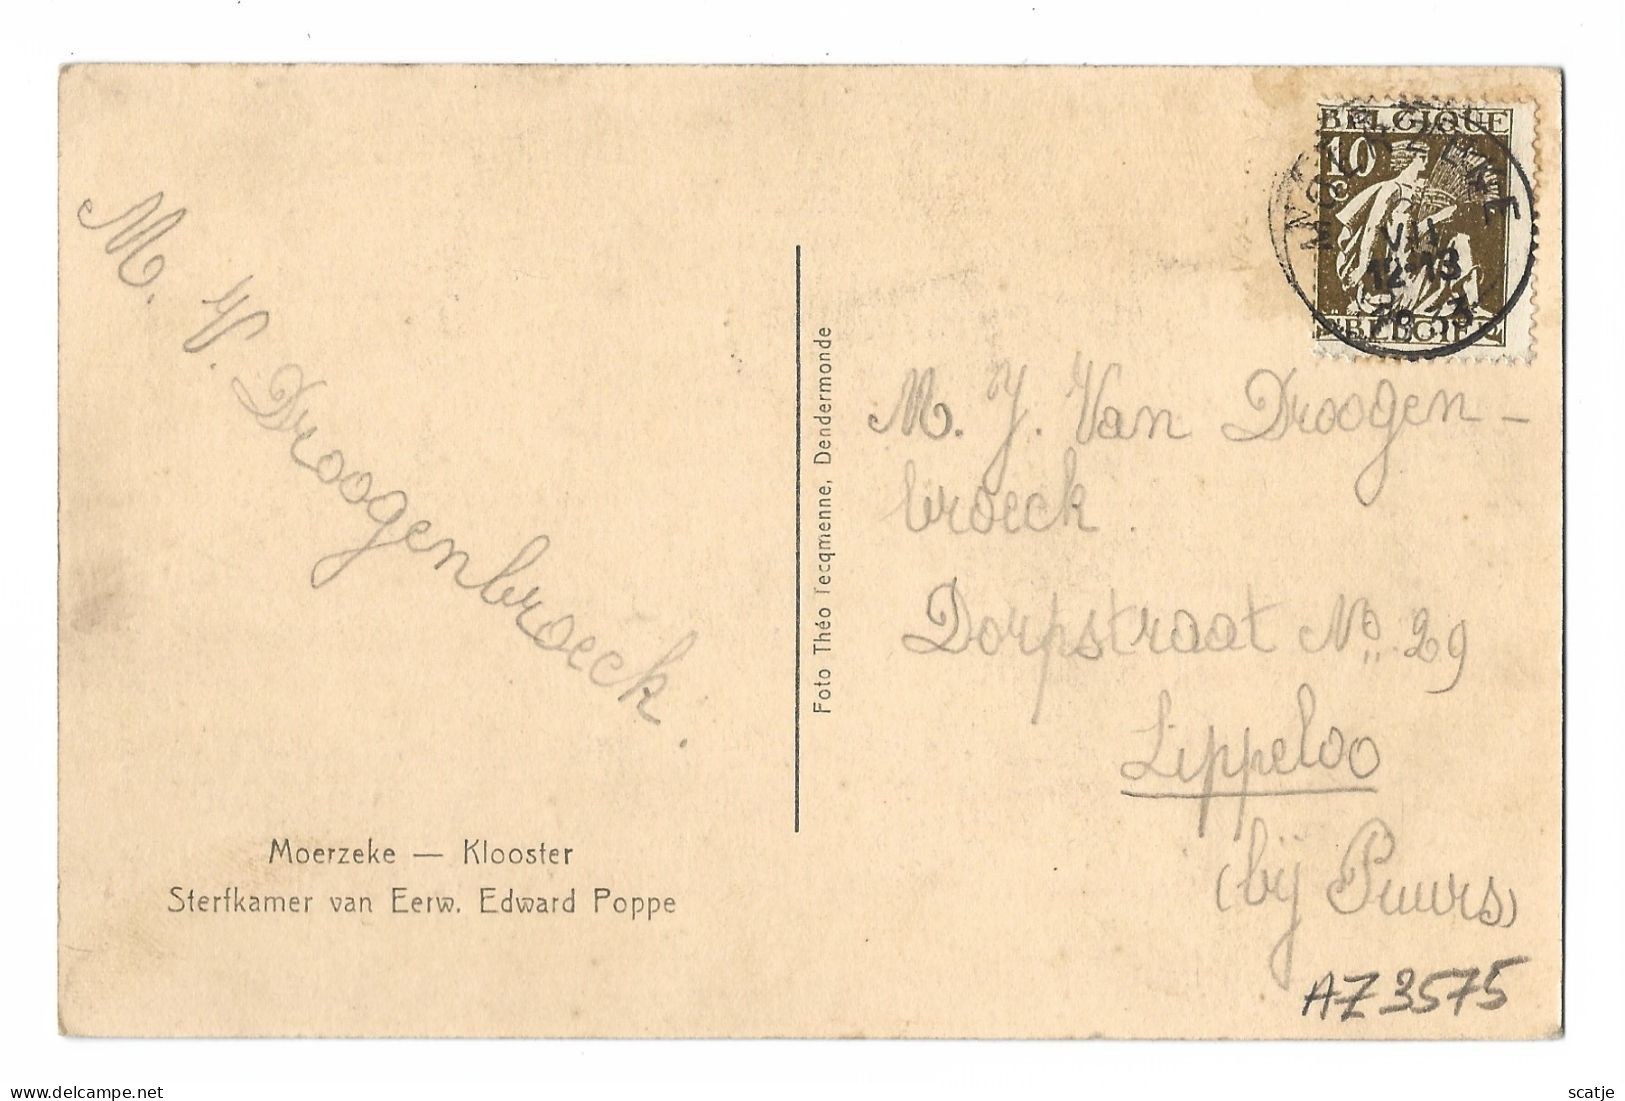 BELGIQUE
10
c
MOERZEKE
VII
12-13
BELGIE
M. V. Droogenbroeck.
M. J. Van Droogen-
broeck.
Dorpstraat No. 29
Lippeloo
(bij Puurs)
Foto Théo Tecqmenne, Dendermonde
Moerzeke — Klooster
Sterfkamer van Eerw. Edward Poppe
AZ3575
www.delcampe.net
scatje